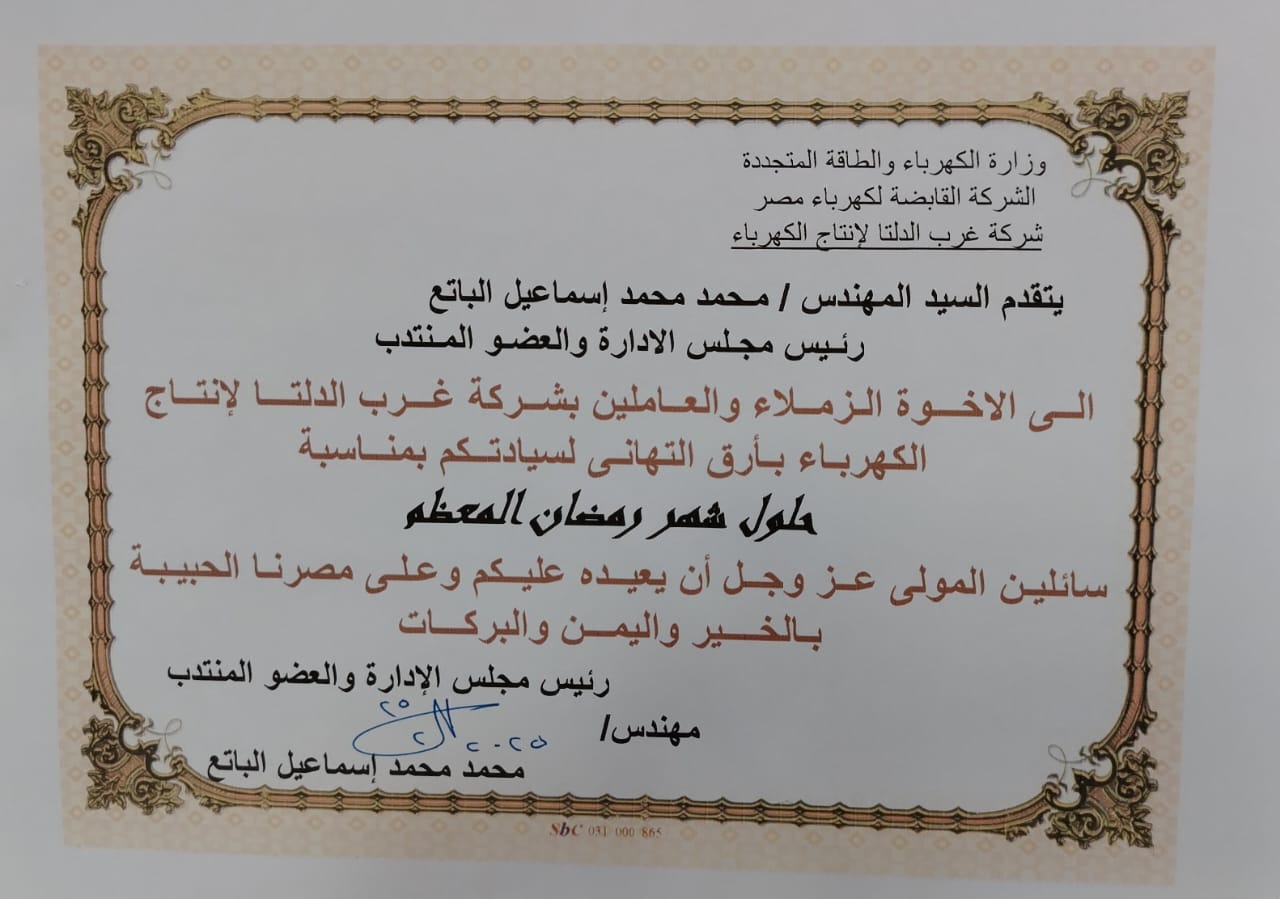 وزارة الكهرباء والطاقة المتجددة
الشركة القابضة لكهرباء مصر
شركة غرب الدلتا لإنتاج الكهرباء
يتقدم السيد المهندس / محمد محمد إسماعيل الباتع
رئيس مجلس الادارة والعضو المنتدب
الى الاخوة الزملاء والعاملين بشركة غرب الدلتا لإنتاج
الكهرباء بأرق التهانى لسيادتكم بمناسبة
حلول شهر رمضان المعظم
سائلين المولى عز وجل أن يعيده عليكم وعلى مصرنا الحبيبة
بالخير واليمن والبركات
رئيس مجلس الإدارة والعضو المنتدب
مهندس/
٢٥
٢
٢٠٢٥
محمد محمد إسماعيل الباتع
SbC 031 000 865